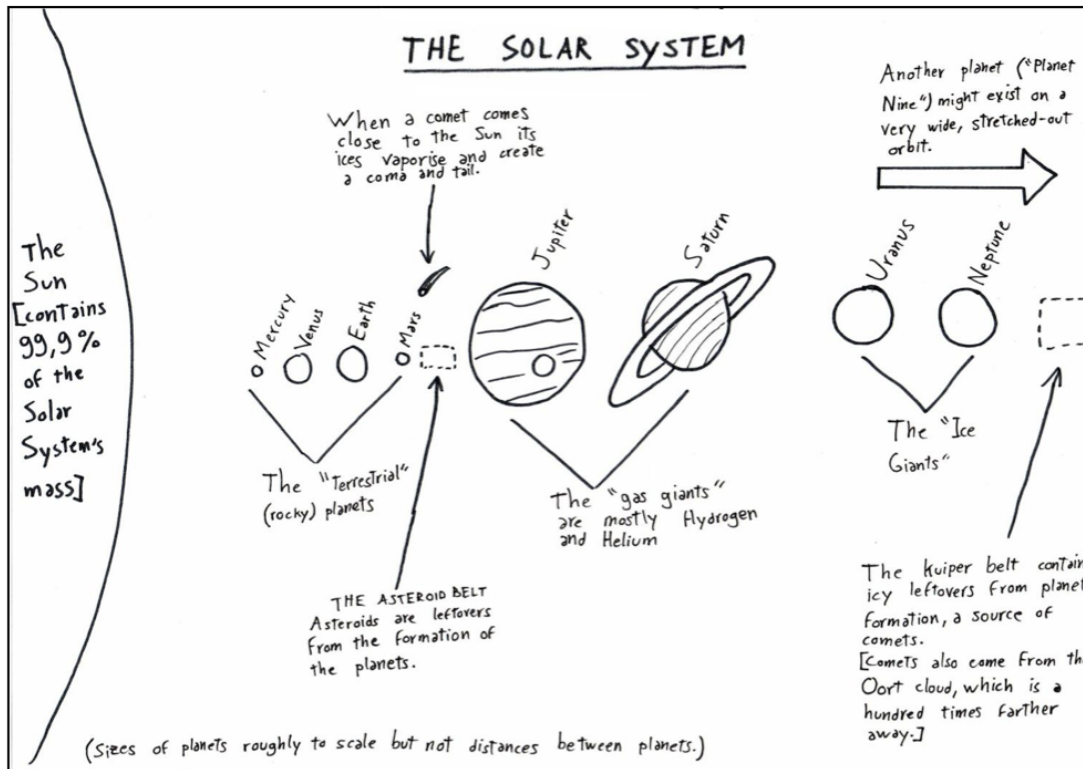 THE SOLAR SYSTEM
When a comet comes
close to the Sun its
ices vaporise and create
a coma and tail.
Another planet ("Planet
Nine") might exist on a
very wide, stretched-out
orbit.
The
Sun
[contains
99,9%
of the
Solar
System's
mass]
Mercury
Venus
Earth
Mars
Jupiter
Saturn
Uranus
Neptune
The "Terrestrial"
(rocky) planets
The "gas giants"
are mostly Hydrogen
and Helium
The "Ice
Giants"
THE ASTEROID BELT
Asteroids are leftovers
from the formation of
the planets.
The Kuiper belt contain
icy leftovers from planet
formation, a source of
comets.
[Comets also come from th
Oort cloud, which is a
hundred times farther
away.]
(Sizes of planets roughly to scale but not distances between planets.)